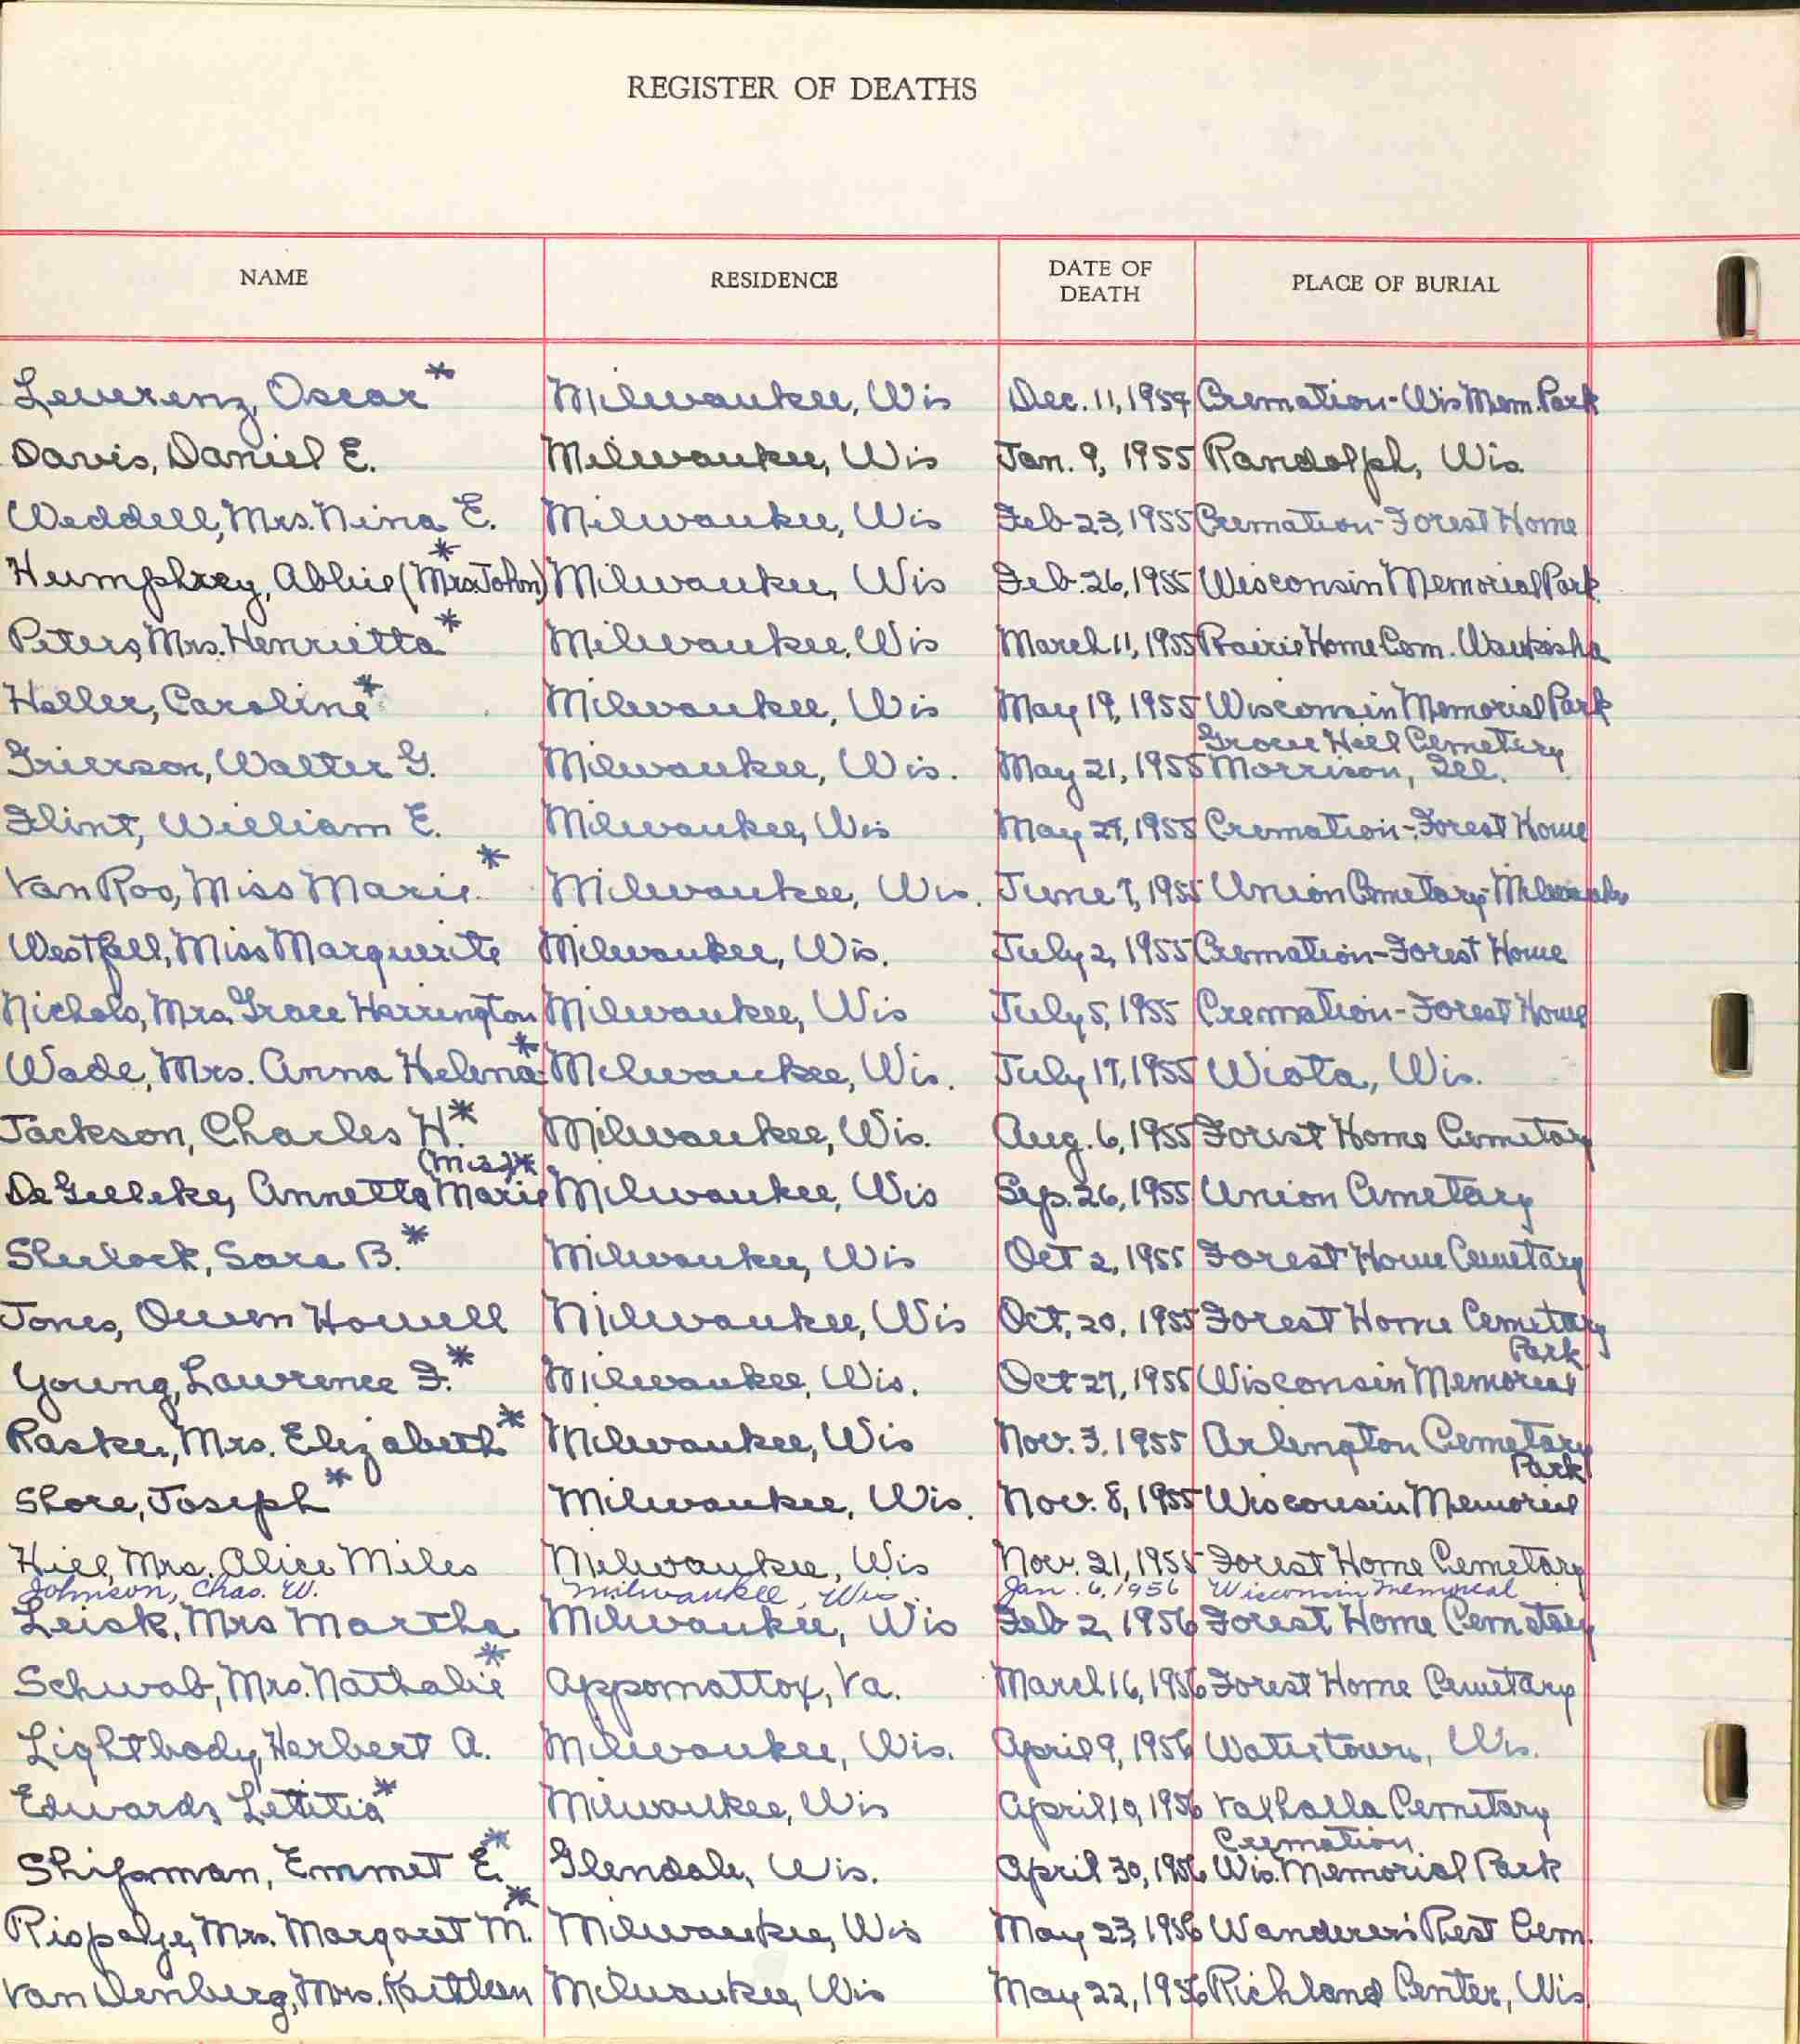 REGISTER OF DEATHS
NAME RESIDENCE DATE OF DEATH PLACE OF BURIAL
Leverenz, Oscar* Milwaukee, Wis Dec. 11, 1954 Cremation-Wis Mem. Park
Davis, Daniel E. Milwaukee, Wis Jan. 9, 1955 Randolph, Wis.
Weddell, Mrs. Nina E. Milwaukee, Wis Feb 23, 1955 Cremation-Forest Home
Humphrey, Abbie (Mrs. John)* Milwaukee, Wis Feb. 26, 1955 Wisconsin Memorial Park
Peters, Mrs. Henrietta* Milwaukee, Wis March 11, 1955 Prairie Home Cem. Waukesha
Heller, Caroline* Milwaukee, Wis May 19, 1955 Wisconsin Memorial Park
Grove Hill Cemetery
Grierson, Walter G. Milwaukee, Wis. May 21, 1955 Morrison, Ill.
Flint, William E. Milwaukee, Wis May 27, 1955 Cremation-Forest Home
Van Roo, Miss Marie* Milwaukee, Wis. June 7, 1955 Union Cemetary-Milwaukee
Westfall, Miss Marguerite Milwaukee, Wis. July 2, 1955 Cremation-Forest Home
Nichols, Mrs. Grace Harrington Milwaukee, Wis July 5, 1955 Cremation-Forest Home
Wade, Mrs. Anna Helena* Milwaukee, Wis. July 17, 1955 Wiota, Wis.
Jackson, Charles H.* Milwaukee, Wis. Aug. 6, 1955 Forest Home Cemetary
(Miss)*
De Gelleke, Annetta Marie Milwaukee, Wis Sep. 26, 1955 Union Cemetary
Sherlock, Sara B.* Milwaukee, Wis Oct 2, 1955 Forest Home Cemetary
Jones, Owen Howell Milwaukee, Wis Oct. 20, 1955 Forest Home Cemetary
Park
Young, Lawrence F.* Milwaukee, Wis. Oct 27, 1955 Wisconsin Memorial
Raskee, Mrs. Elizabeth* Milwaukee, Wis Nov. 3, 1955 Arlington Cemetary
Park
Shore, Joseph* Milwaukee, Wis. Nov. 8, 1955 Wisconsin Memorial
Hill, Mrs. Alice Miles Milwaukee, Wis Nov. 21, 1955 Forest Home Cemetary
Johnson, Chas. W. Milwaukee, Wis. Jan. 6, 1956 Wisconsin Memorial
Leisk, Mrs Martha Milwaukee, Wis Feb 2, 1956 Forest Home Cemetary
Schwab, Mrs. Nathalie* Appomattox, Va. March 16, 1956 Forest Home Cemetary
Lightbody, Herbert A. Milwaukee, Wis. April 9, 1956 Watertown, Wis.
Edwards, Letitia* Milwaukee, Wis April 10, 1956 Valhalla Cemetary
Cremation
Shipman, Emmet E.* Glendale, Wis. April 30, 1956 Wis. Memorial Park
Riopalge, Mrs. Margaret M.* Milwaukee, Wis May 23, 1956 Wanderer's Rest Cem.
Van Denberg, Mrs. Kaithleen Milwaukee, Wis May 22, 1956 Richland Center, Wis